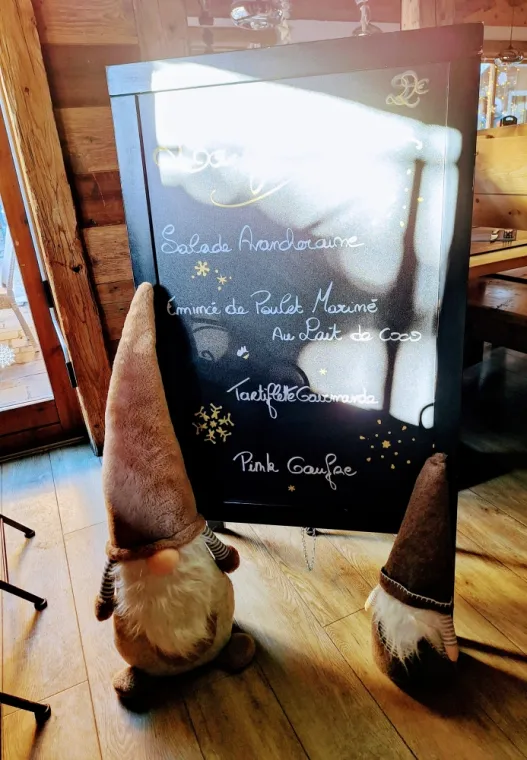 22€
Salade Avancheraine
Émincé de Poulet Mariné
Au Lait de Coco
Tartiflete Gourmande
Pink Gaufre